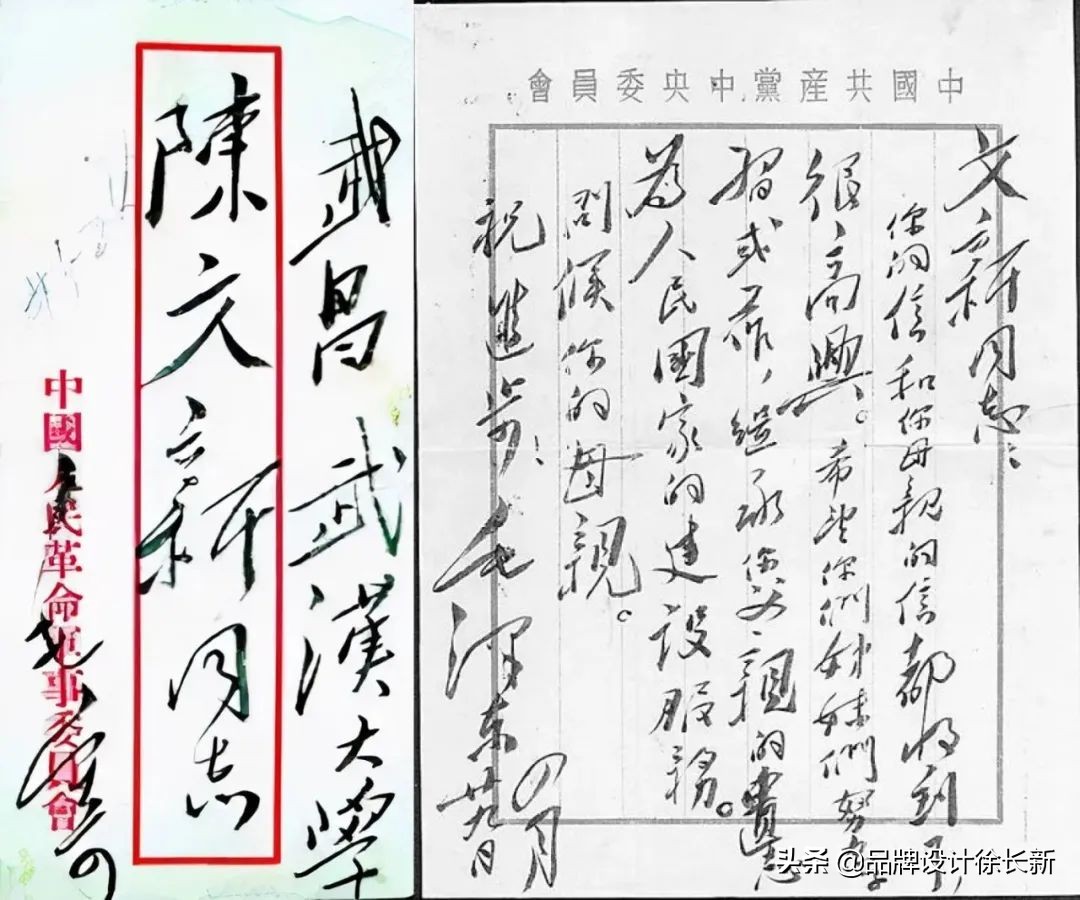 武昌武漢大學
陳文新同志
中國人民革命軍事委員會
中國共産黨中央委員會
文新同志：
你的信和你母親的信都收到了，
很高興。希望你們姊妹們努力學
習或工作，繼承你父親的遺志
為人民國家的建設服務。
問候你的母親。
祝進步！
毛澤東
四月
廿九日
头条 @品牌设计徐长新